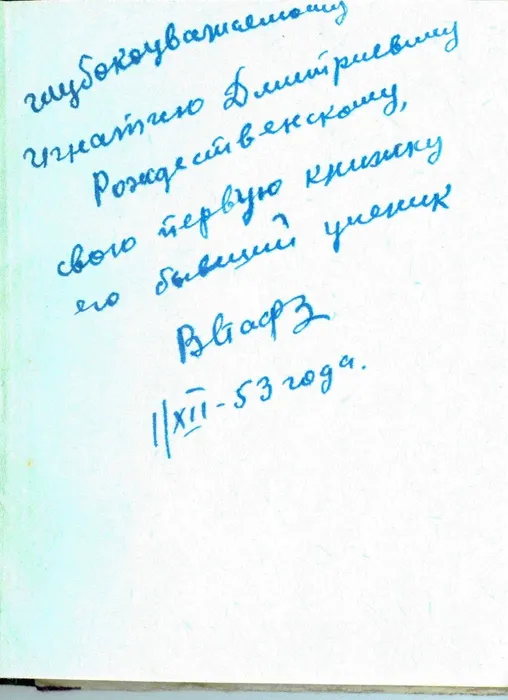 глубокоуважаемому
Игнатию Дмитриевичу
Рождественскому,
свою первую книжку
его бывший ученик
ВАстаф
1/XII-53 года.